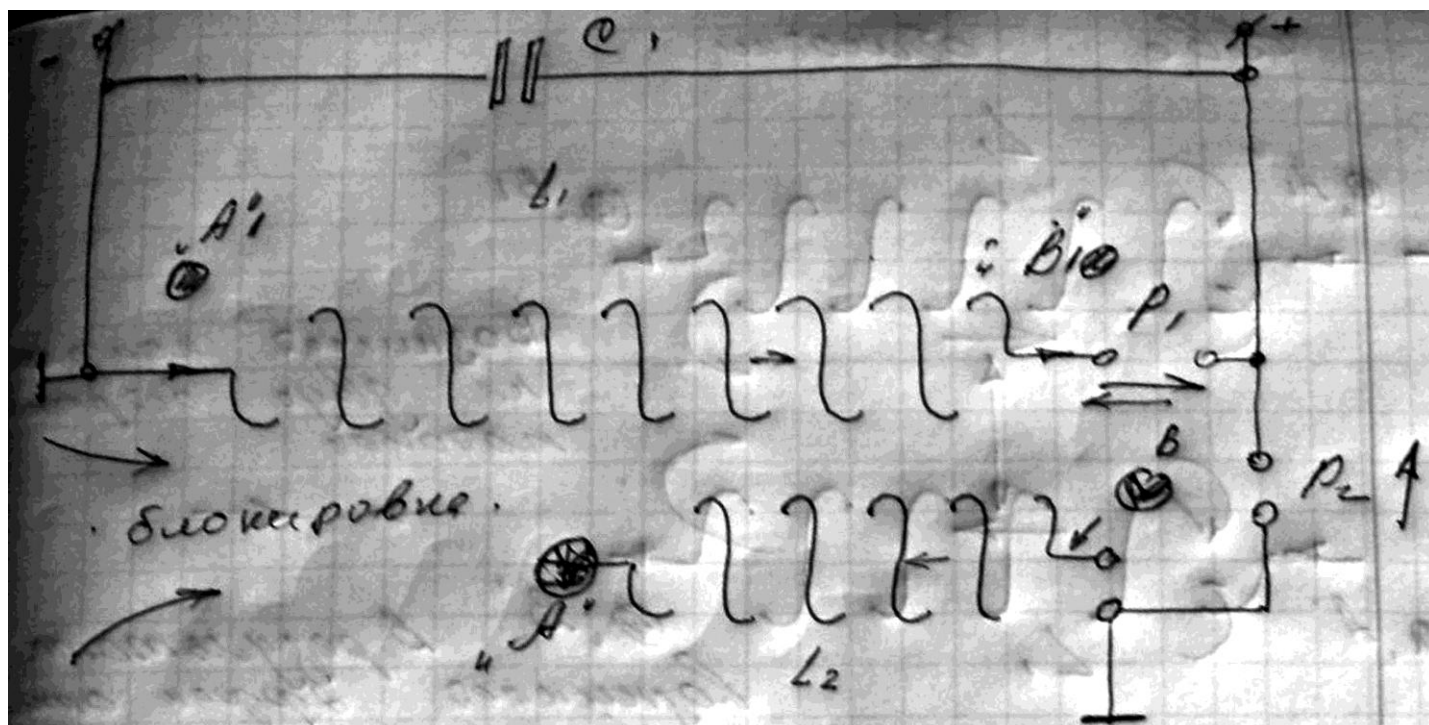 - C1 +
L1
"A"1
"B"1
P1
B
P2
. блокировка.
"A"
L2